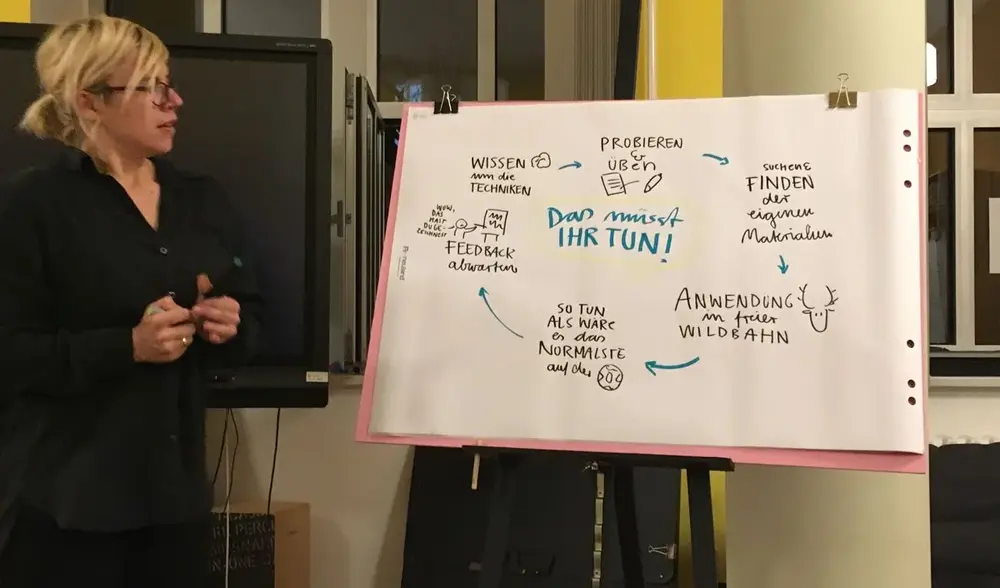 WISSEN
um die
TECHNIKEN
PROBIEREN
&
ÜBEN
SUCHEN &
FINDEN
der
eigenen
Materialien
Das müsst
IHR TUN!
WOW,
DAS
HAST
DU GE-
ZEICHNET?
FEEDBACK
abwarten
ANWENDUNG
in freier
WILDBAHN
SO TUN
ALS WÄRE
es das
NORMALSTE
auf der